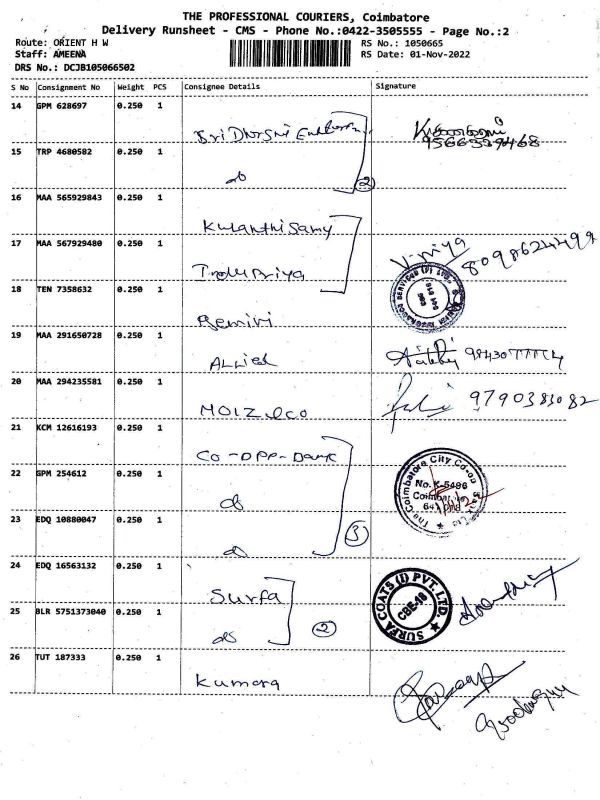 THE PROFESSIONAL COURIERS, Coimbatore
Delivery Runsheet - CMS - Phone No.:0422-3505555 - Page No.:2
Route: ORIENT H W
Staff: AMEENA
DRS No.: DCJB105066502
RS No.: 1050665
RS Date: 01-Nov-2022
S No Consignment No Weight PCS Consignee Details Signature
14 GPM 628697 0.250 1
9566329468
15 TRP 4680582 0.250 1
do
2
16 MAA 565929843 0.250 1
Kulanthisamy
17 MAA 567929480 0.250 1
Priya
8098624499
18 TEN 7358632 0.250 1
Gemini
19 MAA 291650728 0.250 1
ALLied
20 MAA 294235581 0.250 1
MOIZ & CO
9790383082
21 KCM 12616193 0.250 1
CO-OPP-Bank
The Coimbatore City Co-op
No. K-5486
Coimbatore
22 GPM 254612 0.250 1
do
23 EDQ 10880047 0.250 1
do
3
24 EDQ 16563132 0.250 1
Surfa
SURFA COATS (I) PVT. LTD.
CBE-18
25 BLR 5751373040 0.250 1
do
2
26 TUT 187333 0.250 1
Kumara